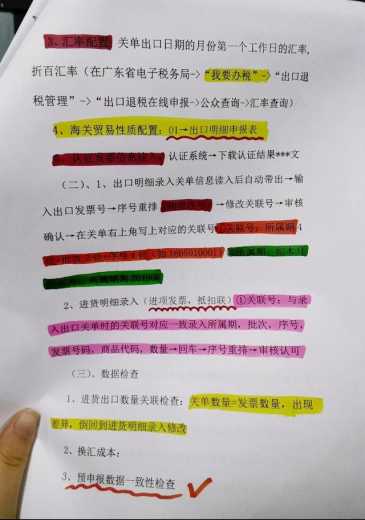 3、汇率配置：关单出口日期的月份第一个工作日的汇率,
折百汇率（在广东省电子税务局->“我要办税”->“出口退
税管理”->“出口退税在线申报->公众查询->汇率查询）
4、海关贸易性质配置：01→出口明细申报表
认证系统→下载认证结果***文
（二）、1、出口明细录入关单信息读入后自动带出→输
入出口发票号→序号重排→修改关联号→审核
确认→在关单右上角写上对应的关联号①关联号：所属期 4
2、进货明细录入（进项发票，抵扣联）①关联号：与录
入出口关单时的关联号对应一致录入所属期，批次，序号，
发票号码，商品代码，数量→回车→序号重排→审核认可
（三）、数据检查
1、进货出口数量关联检查：关单数量=发票数量，出现
差异，倒回到进货明细录入修改
2、换汇成本：
3、预申报数据一致性检查